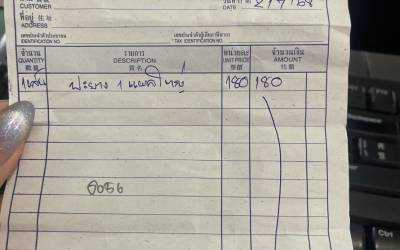 นาม
CUSTOMER
วันที่
DATE 21/1/68
ที่อยู่ 住址
ADDRESS
เลขประจำตัวประชาชน
IDENTIFICATION NO.
เลขประจำตัวผู้เสียภาษีอากร
* TAX IDENTIFICATION NO.
จำนวน รายการ หน่วยละ จำนวนเงิน
QUANTITY DESCRIPTION UNIT PRICE AMOUNT
數量 貨名 單價 共銀
1 ปะยาง 1 แผลใหญ่ 180 180
Ctrl